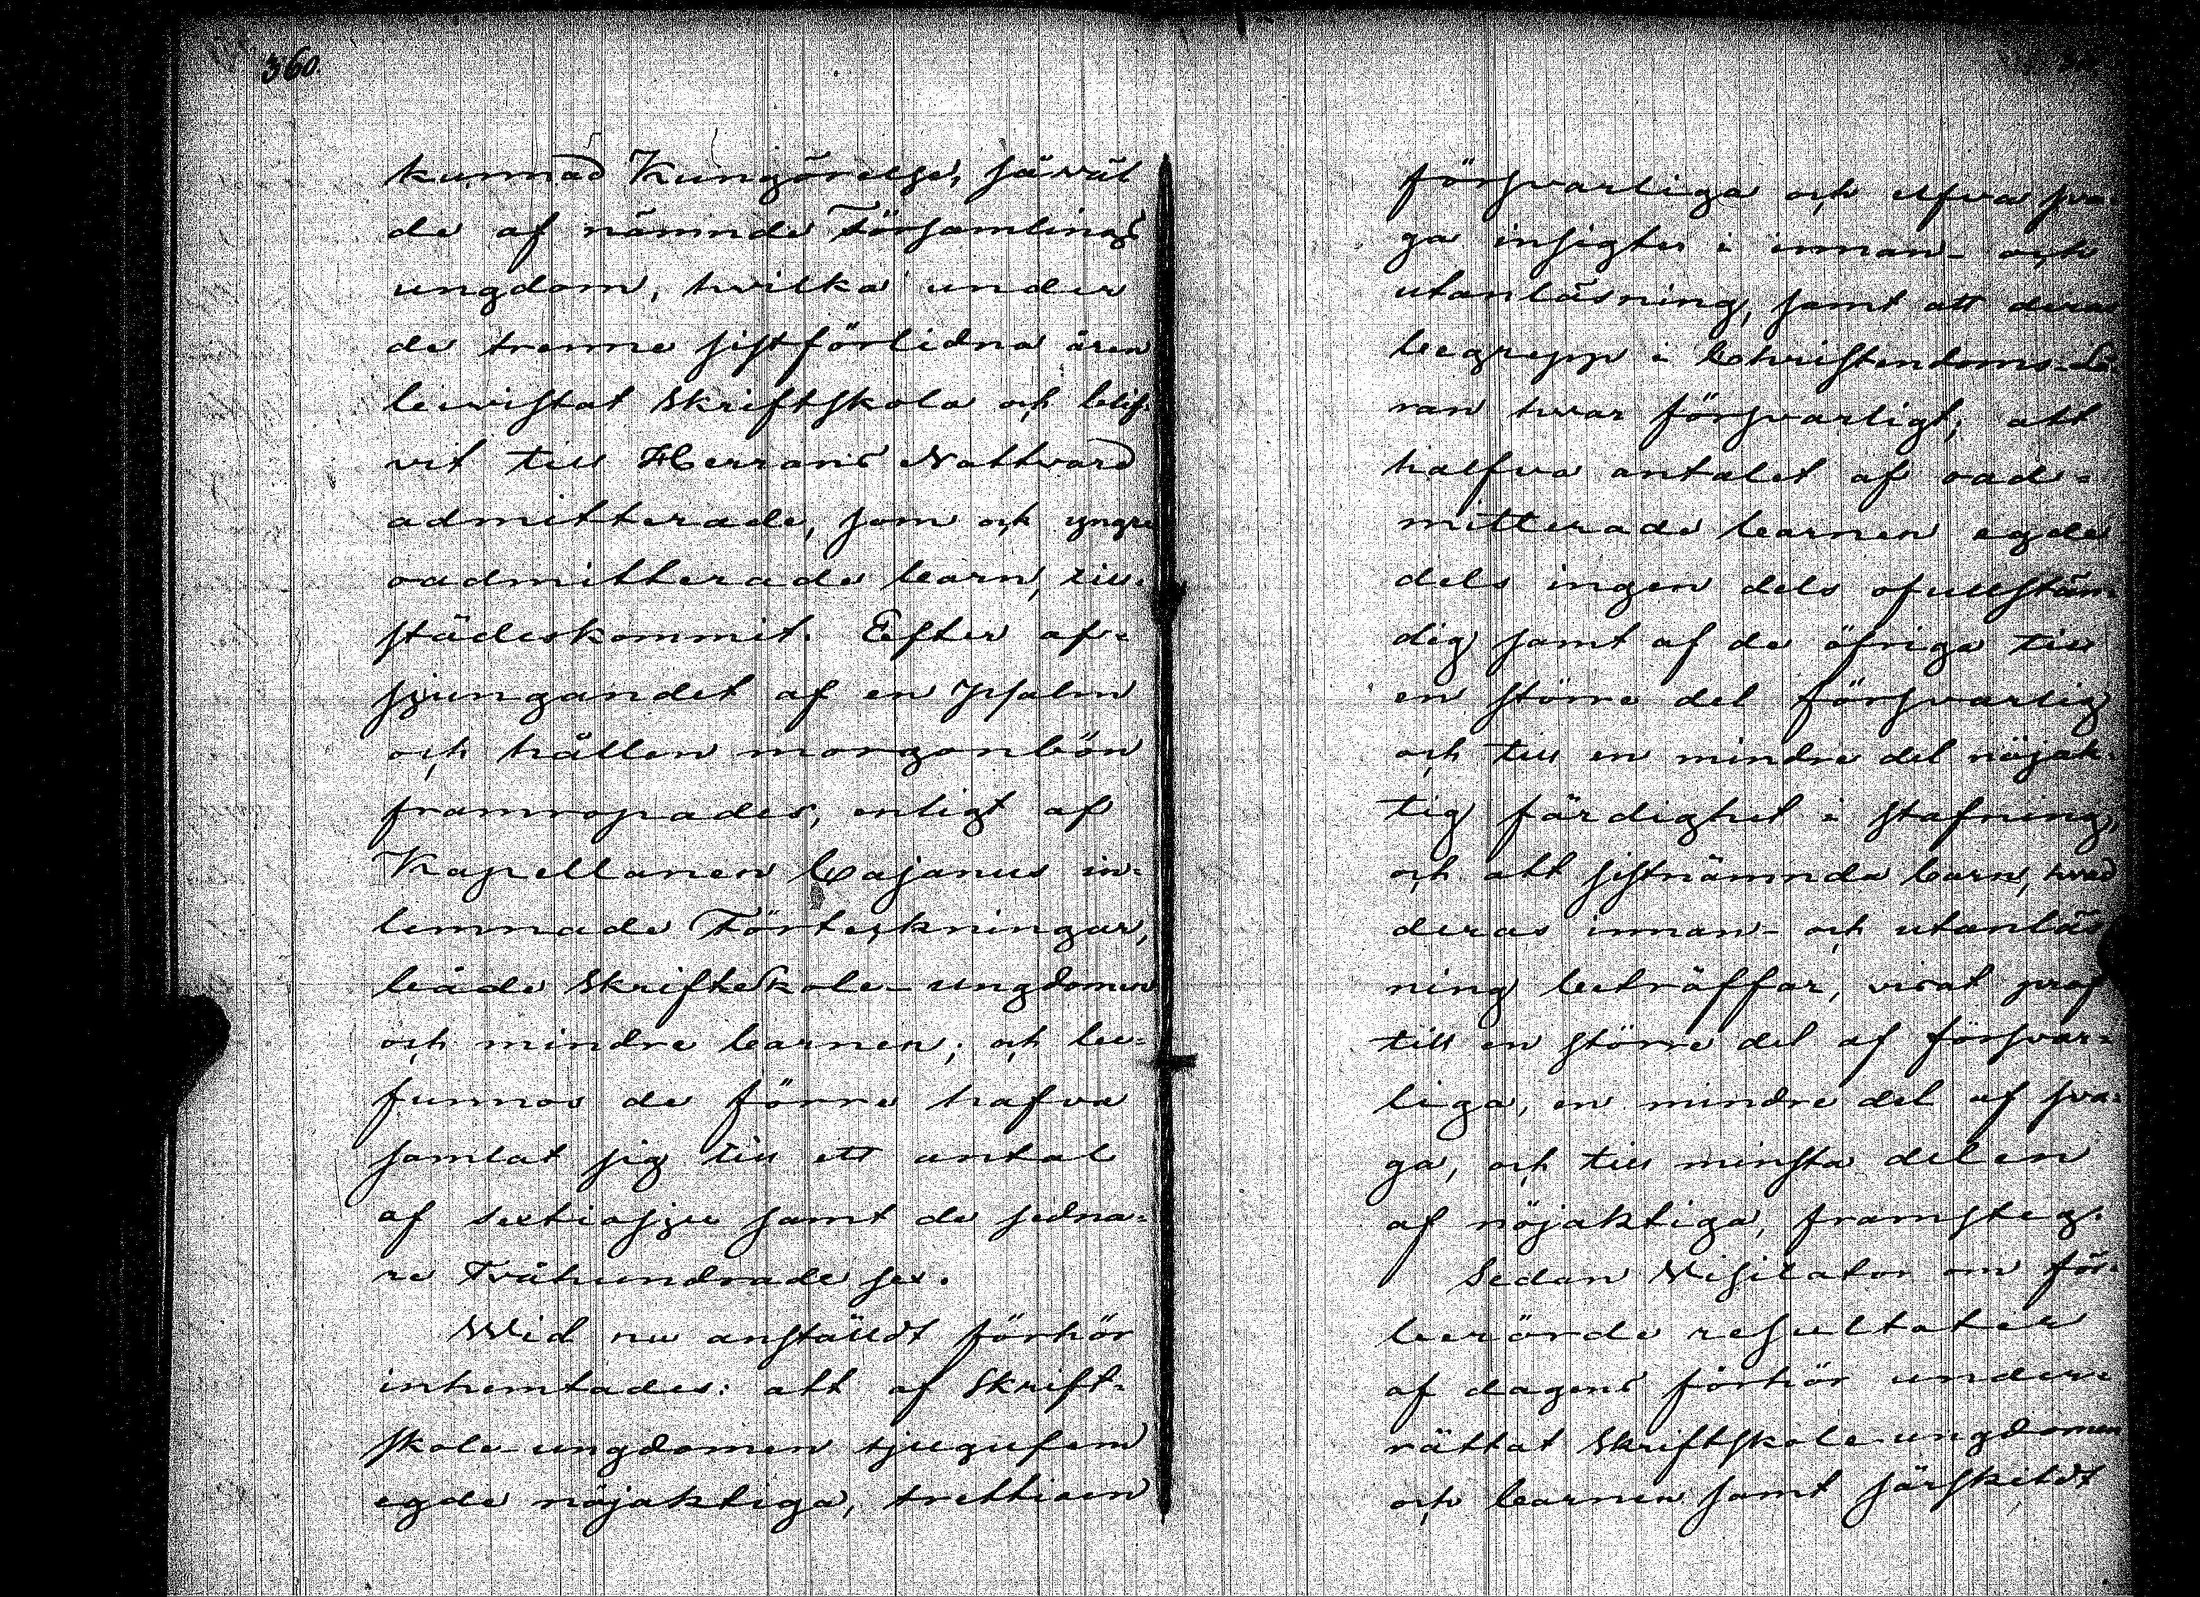 360.
kunnad Kungörelse, såväl
de af nämnde Församlings
ungdom, hvilka under
de trenne sistförlidna åren
bewistat Skriftskola och blif-
vit till Herrans Nattvard
admitterade, som och yngre
oadmitterade barn, till-
städeskommit. Efter af-
sjungandet af en Psalm
och hållen morgonbön
framropades, enligt af
Kapellanen Cajanus in-
lemnade Förteckningar,
både Skriftskole-ungdomen
och mindre barnen; och be-
funnos de förre hafva
samlat sig till ett antal
af sextiosju samt de sedna-
re Tvåhundrade sex.
Wid nu anställdt förhör
inhemtades: att af Skrift-
skole-ungdomen tjugufem
egde nöjaktiga, trettioen
försvarliga och elfva sva-
ga insigter i innan- och
utanläsning, samt att deras
begrepp i Christendoms-Lä-
ran hvar försvarligt; att
halfva antalet af oad-
mitterade barnen egde
dels ingen dels ofullstän-
dig samt af de öfriga till
en större del försvarlig
och till en mindre del nöjak-
tig färdighet i stafning,
och att sistnämnda barn, hvad
deras innan- och utanläs-
ning beträffar, visat prof
till en större del af försvar-
liga, en mindre del af sva-
ga, och till minsta delen
af nöjaktiga, framsteg.
Sedan Visitator om för-
berörde resultater
af dagens förhör under-
rättat Skriftskole-ungdomen
och barnen samt särskildt